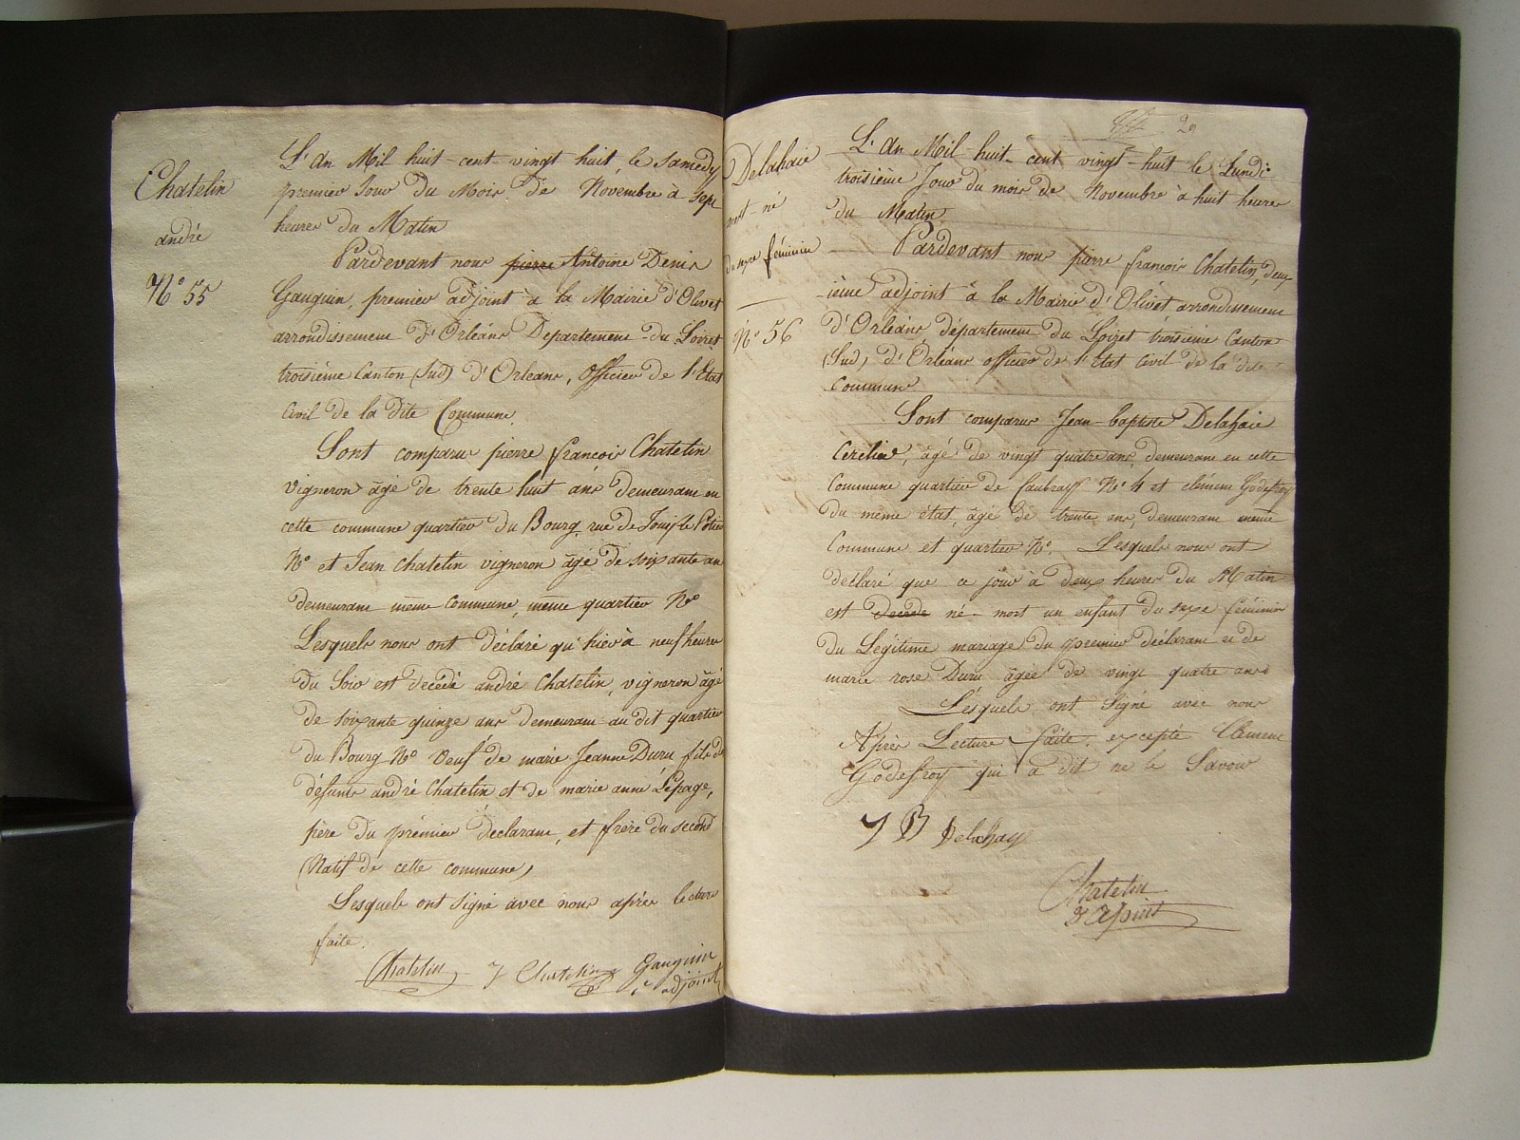 Chatelin
andré
N° 55
L'an Mil huit-cent-vingt huit le samedy
premier Jour du Mois de Novembre à sept
heures du Matin
Pardevant nous pierre Antoine Denis
Gauguin, premier adjoint à la Mairie d'Olivet
arrondissement d'Orléans Departement du Loiret
troisième Canton (Sud) d'Orleans, officier de l'Etat
Civil de la dite Commune.
Sont comparus pierre françois Chatelin
vigneron âgé de trente huit ans demeurant en
cette commune quartier du Bourg, rue de
N° et Jean chatelin vigneron âgé de soixante an
demeurant même commune, même quartier N°
Lesquels nous ont déclaré qu'hier à neuf heures
du Soir est decédé andré Chatelin, vigneron âgé
de soixante quinze ans demeurant au dit quartier
du Bourg N° veuf de marie Jeanne Duru fils de
défunts andré Chatelin et de marie anne Lepage,
père du prémier déclarant, et frère du second
(Natif de cette commune)
Lesquels ont signé avec nous après lecture
faite.
Chatelin J Chatelin Gauguin
adjoint
29
Delahaie
mort-né
du sexe féminin
N° 56
L'an Mil-huit-cent vingt-huit le Lundi
troisième Jour du mois de Novembre à huit heures
du Matin
Pardevant nous pierre françois Chatelin, deux
ième adjoint à la Mairie d'Olivet arrondissement
d'Orleans département du Loiret troisieme Canton
(Sud) d'Orléans officier de l'Etat Civil de la dite
Commune
Sont comparus Jean-baptiste Delahaie
âgé de vingt quatre ans, demeurant en cette
Commune quartier de Caubray N° 4 et clément Godefroy
du même état, âgé de trente ans, demeurant même
Commune et quartier N°. Lesquels nous ont
déclaré que ce jour à deux heures du Matin
est decede né-mort un enfant du sexe féminin
du Légitime mariage du premier déclarant et de
marie rose Duru âgée de vingt quatre ans
Lesquels ont signé avec nous
Après Lecture faite, excepté Clement
Godefroy qui a dit ne le Savoir
J B Delahay
Chatelin
adjoint